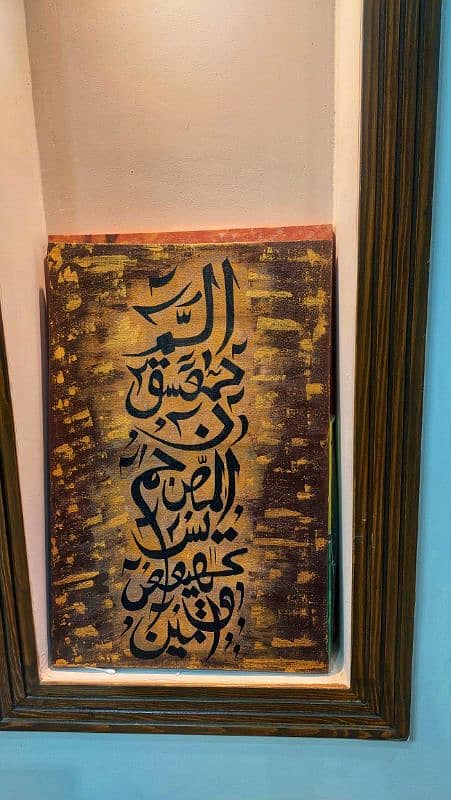 الٓمّٓ
حمعسق
ن
المص
حم
يس
كهيعص
امين